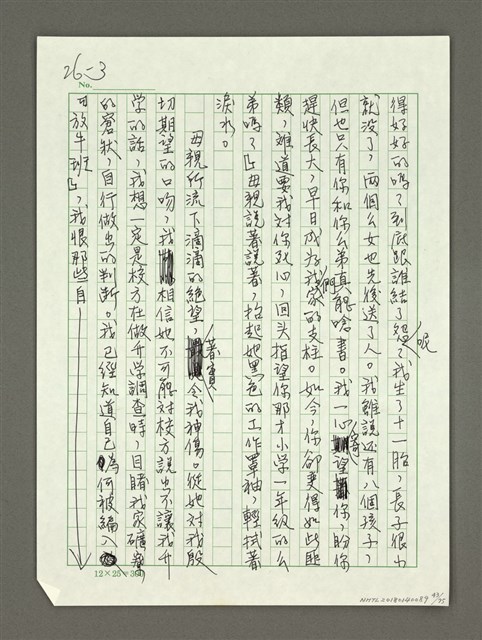 26-3
No.
得好好的嗎？到底跟誰結了怨呢？我生了十一胎，長子很小
就没了，兩個么女也先後送了人。我雖説还有八個孩子，
但也只有你和你么弟真能唸書。我一心寄望你，盼你
趕快長大，早日成為我們家的支柱。如今，你卻变得如此匪
類，难道要我对你死心，回头指望你那才小学一年级的么
弟嗎？』母親説著説著，抬起她黑色的工作罩袖，輕拭着
淚水。
母親所流下滴滴的絶望，著實令我神傷。從她对我殷
切期望的口吻，我相信她不可能对校方説出不讓我升
学的話，我想一定是校方在做升学調查時，目睹我家礦家
的窘狀，自行做出的判断。我已經知道自己為何被編入
「放牛班」，我恨那些自
12×25=300
NMTL20180140089 43/75